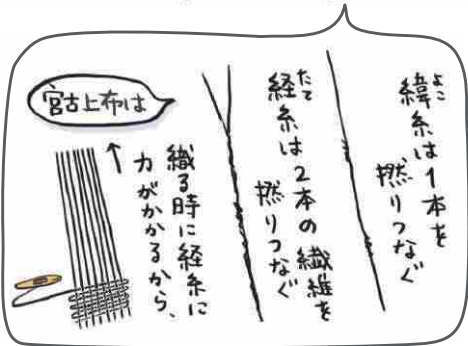 緯糸は1本を
撚りつなぐ
経糸は2本の繊維を
撚りつなぐ
宮古上布は
織る時に経糸に
力がかかるから、
よこ
たて